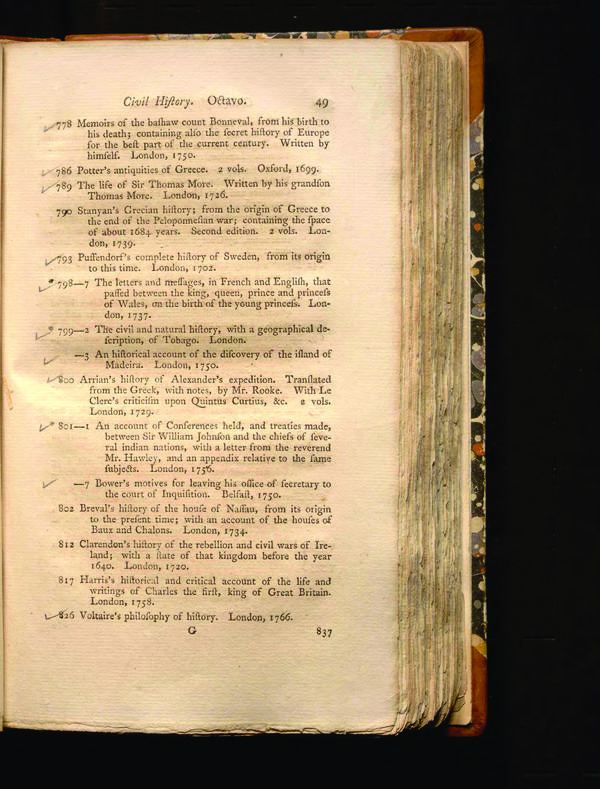 Civil Hiſtory. Octavo. 49
778 Memoirs of the baſhaw count Bonneval, from his birth to
his death; containing alſo the ſecret hiſtory of Europe
for the beſt part of the current century. Written by
himſelf. London, 1750.
786 Potter's antiquities of Greece. 2 vols. Oxford, 1699.
789 The life of Sir Thomas More. Written by his grandſon
Thomas More. London, 1726.
790 Stanyan's Grecian hiſtory; from the origin of Greece to
the end of the Peloponneſian war; containing the ſpace
of about 1684 years. Second edition. 2 vols. Lon-
don, 1739.
793 Puffendorf's complete hiſtory of Sweden, from its origin
to this time. London, 1702.
* 798—7 The letters and meſſages, in French and Engliſh, that
paſſed between the king, queen, prince and princeſs
of Wales, on the birth of the young princeſs. Lon-
don, 1737.
* 799—2 The civil and natural hiſtory, with a geographical de-
ſcription, of Tobago. London.
—3 An hiſtorical account of the diſcovery of the iſland of
Madeira. London, 1750.
800 Arrian's hiſtory of Alexander's expedition. Tranſlated
from the Greek, with notes, by Mr. Rooke. With Le
Clerc's criticiſm upon Quintus Curtius, &c. 2 vols.
London, 1729.
* 801—1 An account of Conferences held, and treaties made,
between Sir William Johnſon and the chiefs of ſeve-
ral indian nations, with a letter from the reverend
Mr. Hawley, and an appendix relative to the ſame
ſubjects. London, 1756.
—7 Bower's motives for leaving his office of ſecretary to
the court of Inquiſition. Belfaſt, 1750.
802 Breval's hiſtory of the houſe of Naſſau, from its origin
to the preſent time; with an account of the houſes of
Baux and Chalons. London, 1734.
812 Clarendon's hiſtory of the rebellion and civil wars of Ire-
land; with a ſtate of that kingdom before the year
1640. London, 1720.
817 Harris's hiſtorical and critical account of the life and
writings of Charles the firſt, king of Great Britain.
London, 1758.
826 Voltaire's philoſophy of hiſtory. London, 1766.
G 837